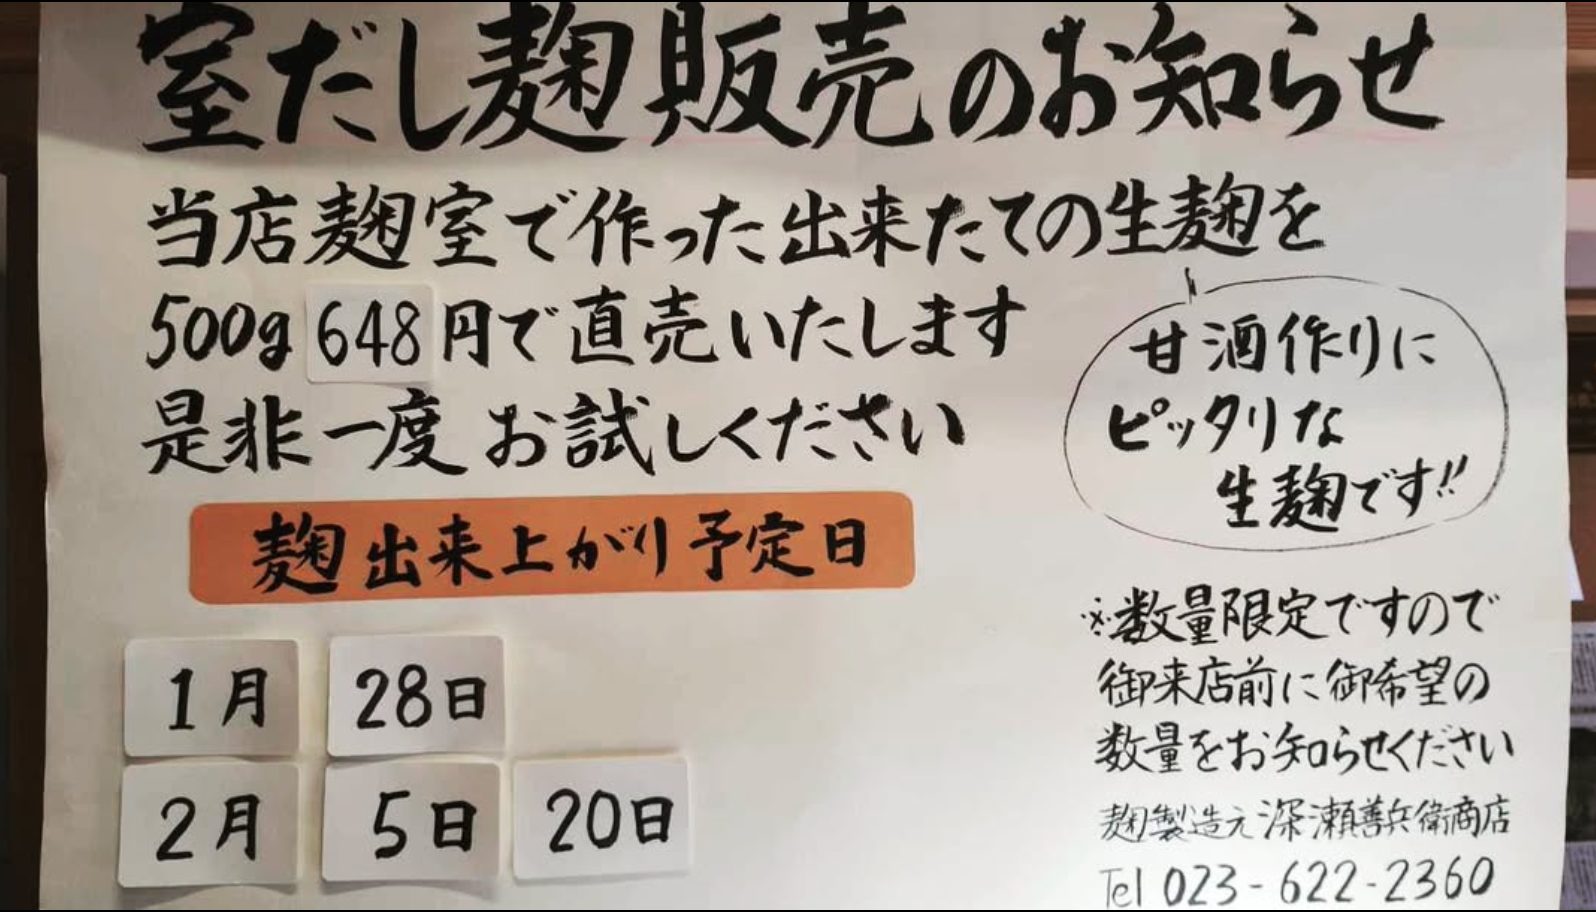 室だし麹販売のお知らせ
当店麹室で作った出来たての生麹を
500g 648円で直売いたします
是非一度お試しください
甘酒作りに
ピッタリな
生麹です!!
麹出来上がり予定日
1月 28日
2月 5日 20日
※数量限定ですので
御来店前に御希望の
数量をお知らせください
麹製造元 深瀬善兵衛商店
Tel 023-622-2360